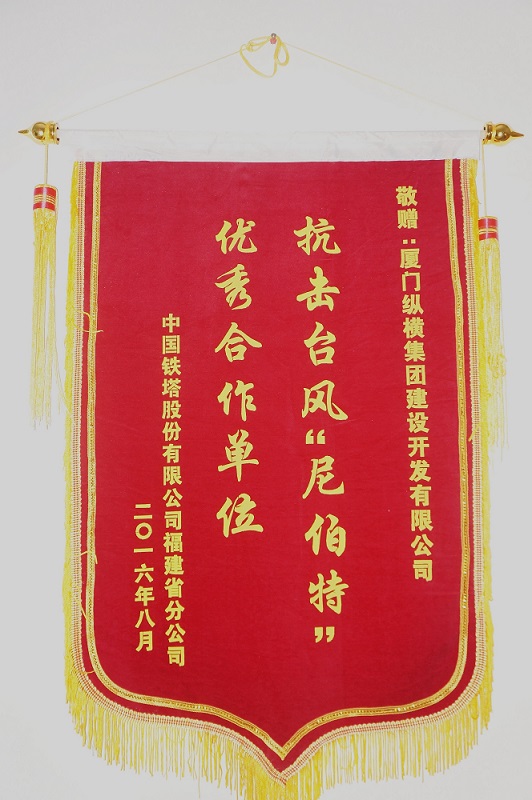 敬赠：厦门纵横集团建设开发有限公司
抗击台风“尼伯特”
优秀合作单位
中国铁塔股份有限公司福建省分公司
二〇一六年八月